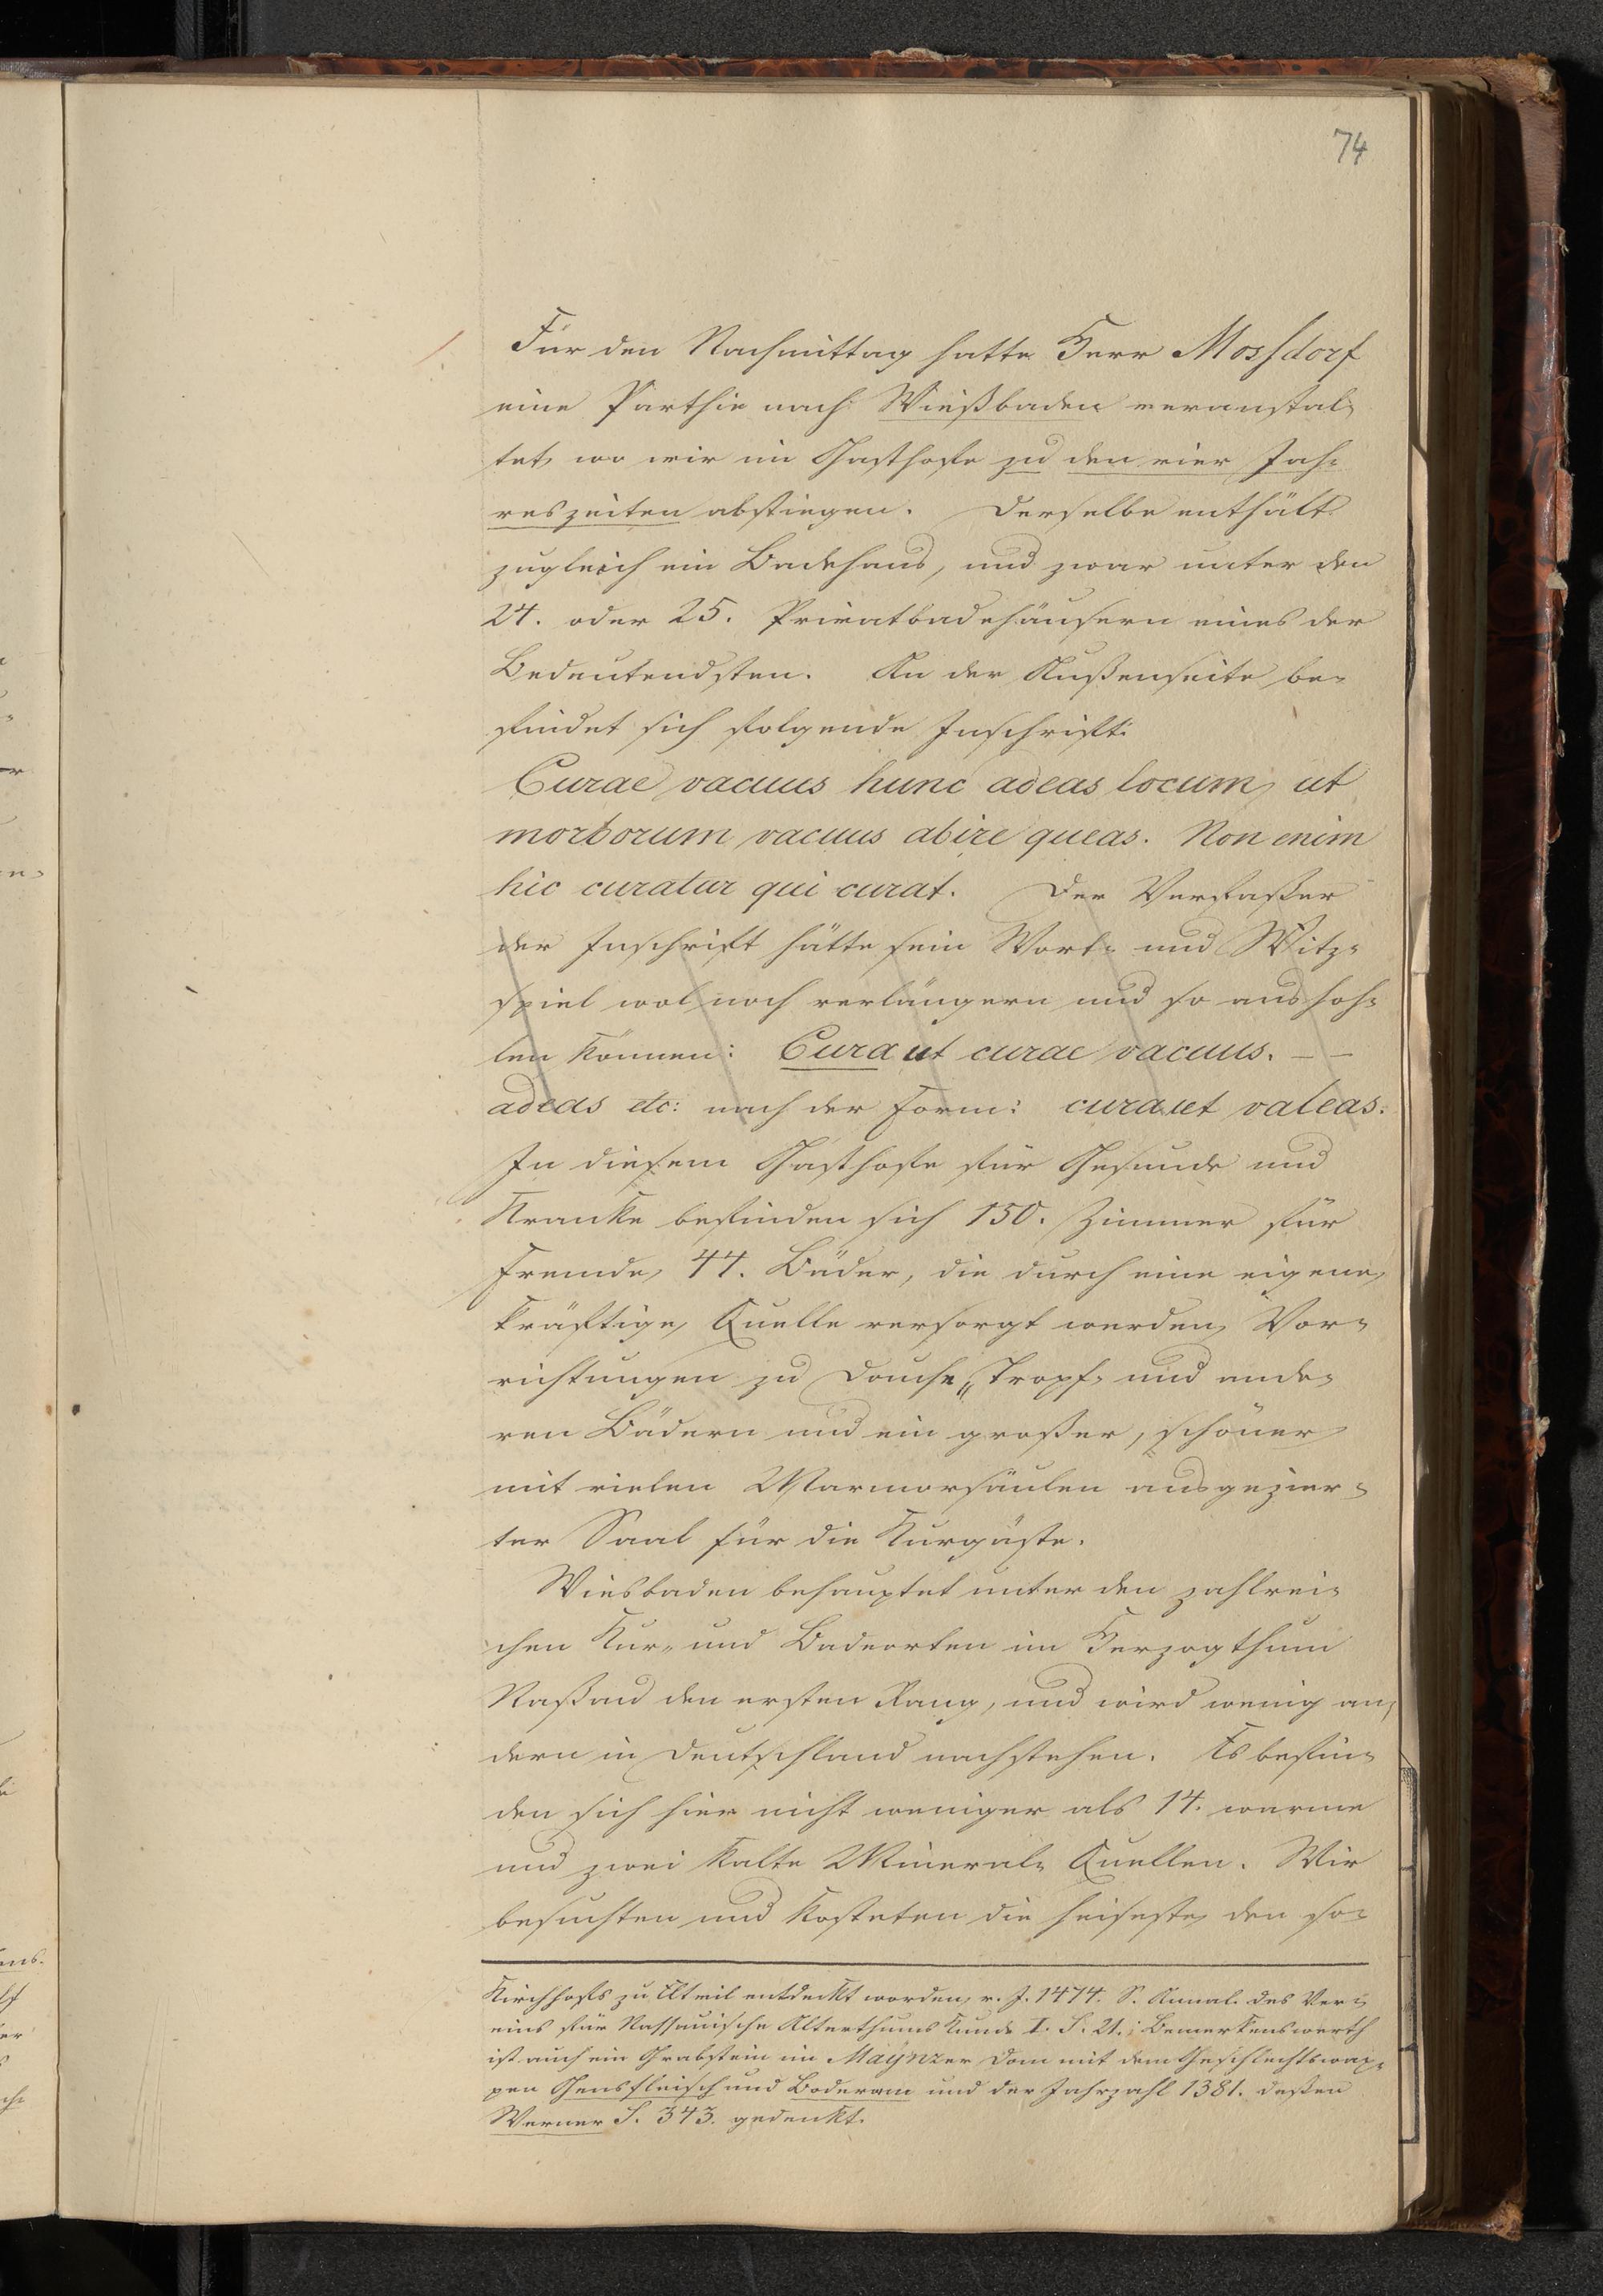 74
Für den Nachmittag hatte Herr Mossdorf
eine Parthie nach Wießbaden veranstal-
tet, wo wir im Gasthofe zu den vier Jah-
reszeiten abstiegen. Derselbe enthält
zugleich ein Badehaus, und zwar unter den
24. oder 25. Privatbadehäusern eines der
Bedeutendsten. An der Außenseite be-
findet sich folgende Inschrift:
Curae vacuus hunc adeas locum, ut
morborum vacuus abire queas. Non enim
hic curatur qui curat. Der Verfaßer
der Inschrift hätte sein Wort- und Witz-
spiel wol noch verlängern und so aushoh-
len können: Cura ut curae vacuus. — —
adeas etc: nach der Form: cura ut valeas.
In diesem Gasthofe für Gesunde und
Kranke befinden sich 150. Zimmer für
Fremde, 44. Bäder, die durch eine eigene,
kräftige, Quelle versorgt werden, Vor-
richtungen zu Douche, Tropf- und ande-
ren Bädern und ein großer, schöner
mit vielen Marmorsäulen ausgezier-
ter Saal für die Kurgäste.
Wiesbaden behauptet unter den zahlrei-
chen Kur- und Badeorten im Herzogthum
Naßau den ersten Rang, und wird wenig an-
dern in Deutschland nachstehen. Es befin-
den sich hier nicht weniger als 14. warme
und zwei kalte Mineral- Quellen. Wir
besuchten und kosteten die heiseste, den so-
Kirchhofs zu Eltvil entdeckt worden, v. J. 1474. S. Annal. des Ver-
eins für Nassauische Alterthums Kunde I. S. 21.; Bemerkenswerth
ist auch ein Grabstein im Maynzer Dom mit dem Geschlechtswap-
pen Gensfleisch und Boderam und der Jahrzahl 1381. deßen
Werner S. 343. gedenkt.